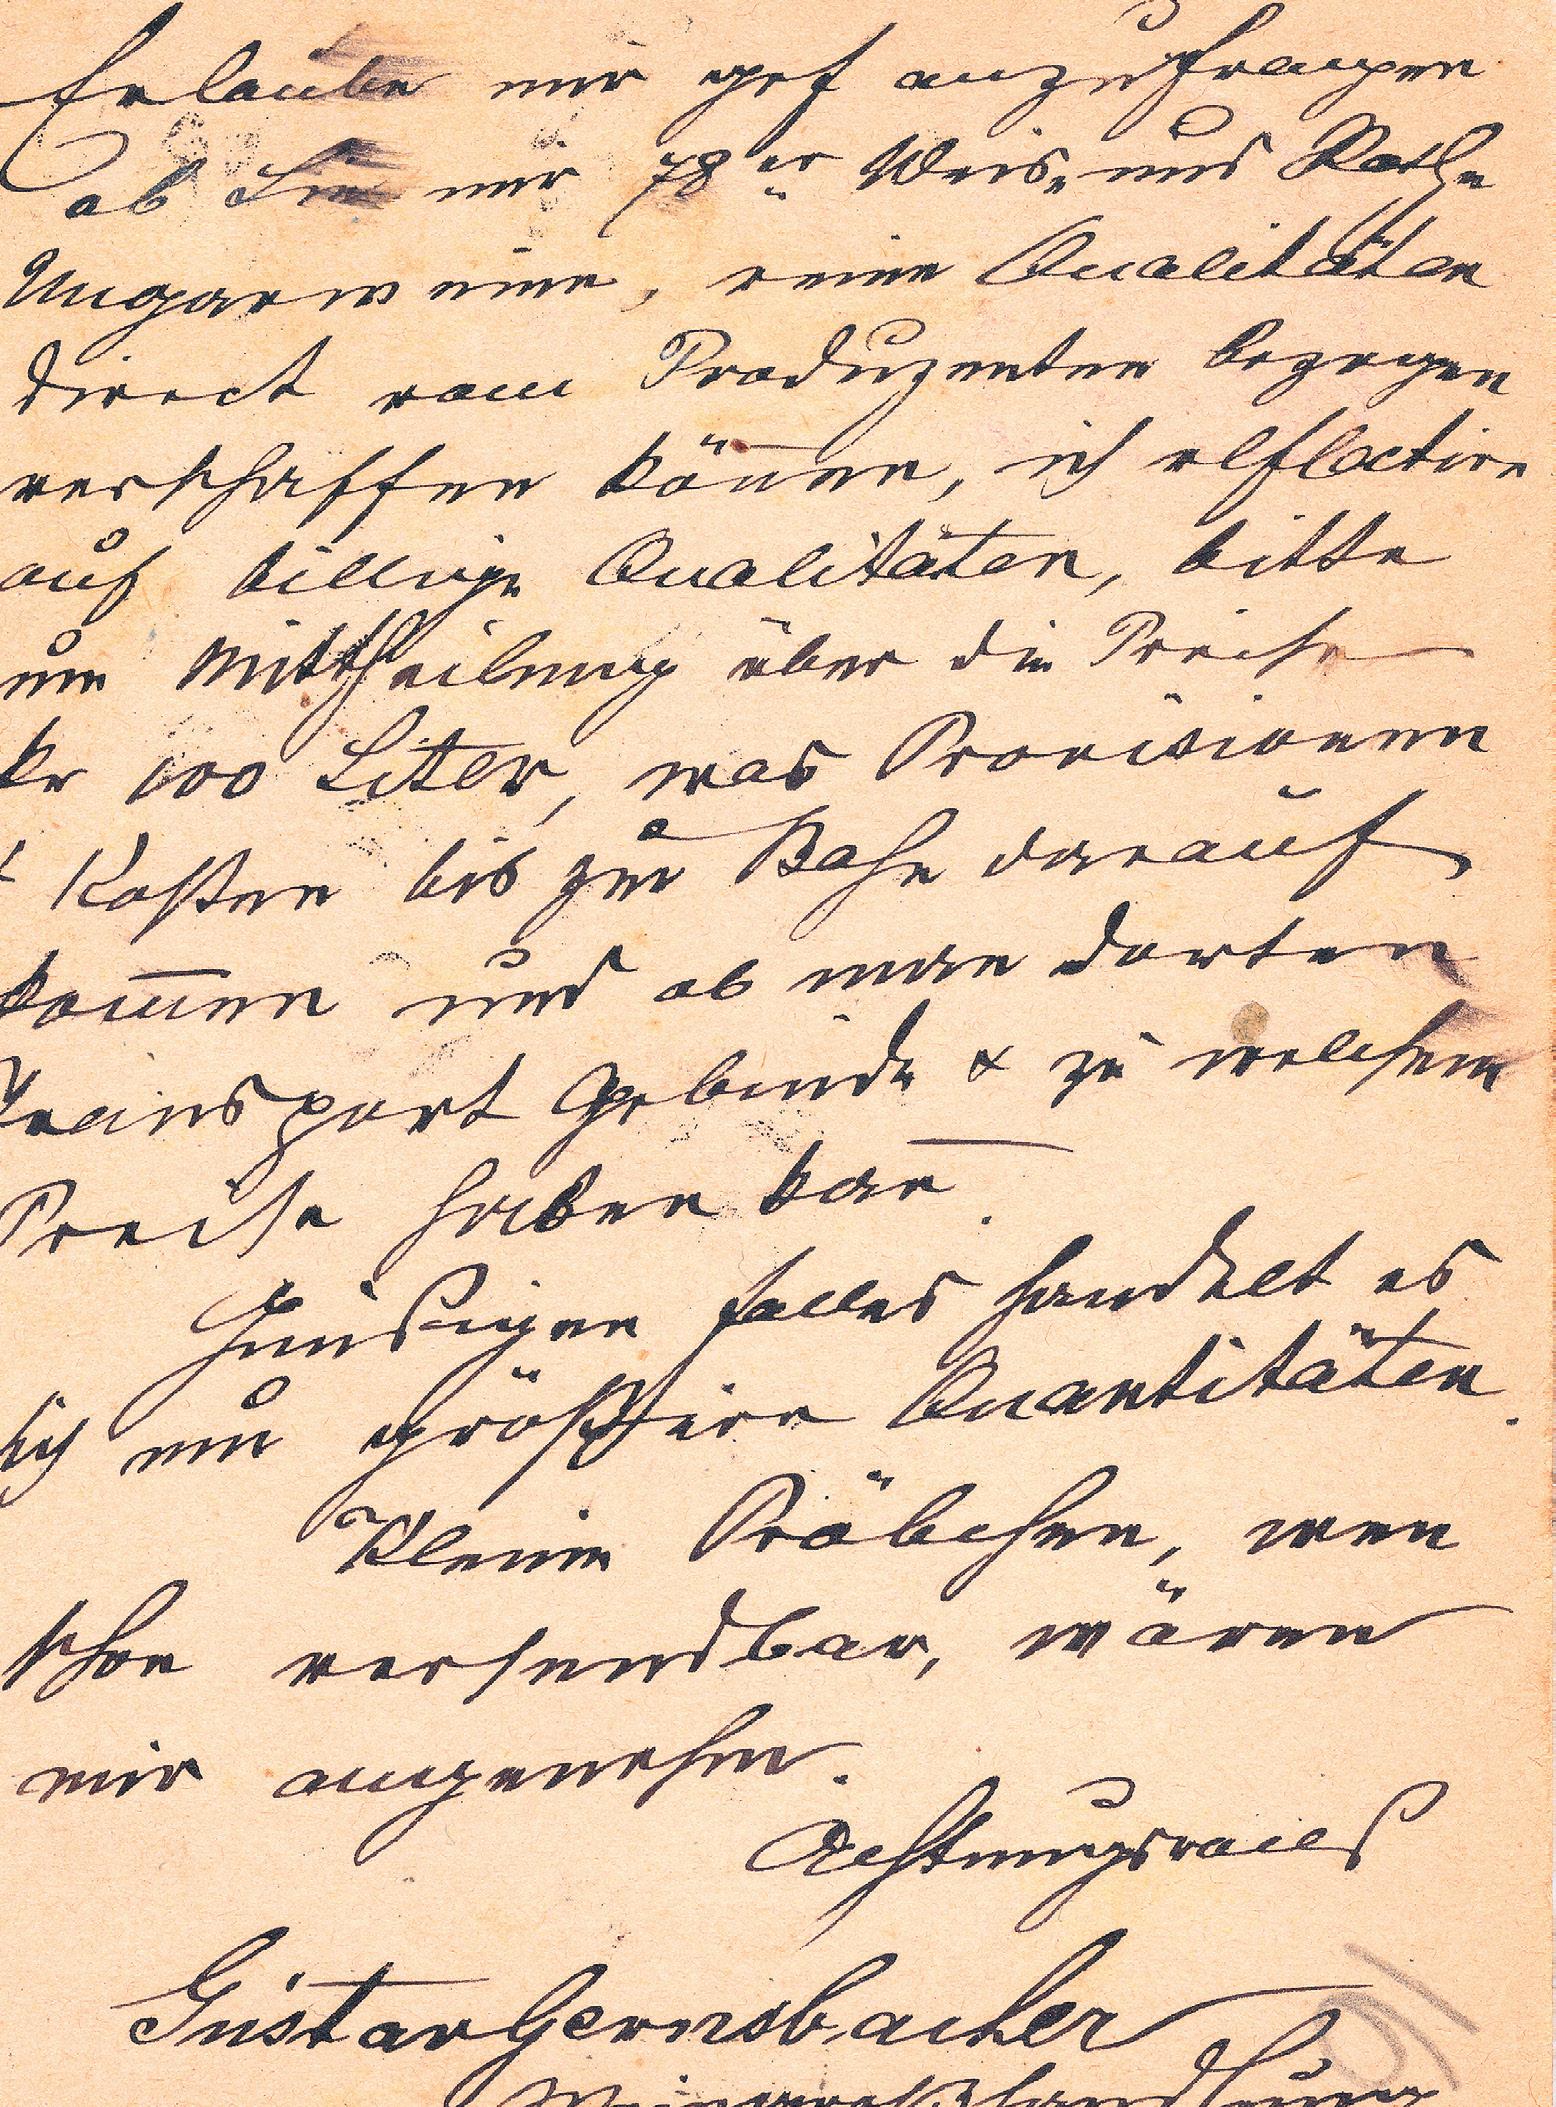 Erlaube mir gef anzufragen
ob Sie mir 78er Weis- und Rothe
Ungarweine, reine Qualitäten
direct vom Produzenten bezogen
verschaffen können, ich reflectire
auf billige Qualitäten, bitte
um Mittheilung über die Preise
pr 100 Liter, was Provisionen
& Kosten bis zur Bahn darauf
kom̅en und ob man dorten
Transport Gebinde & zu welchem
Preise haben kan̅.
Günstigen Falles handelt es
sich um größere Quantitäten.
Kleine Pröbchen, wen
schon versendbar, wären
mir angenehm.
Achtungsvollst
Gustav Gernsbacher
Weingroßhandlung